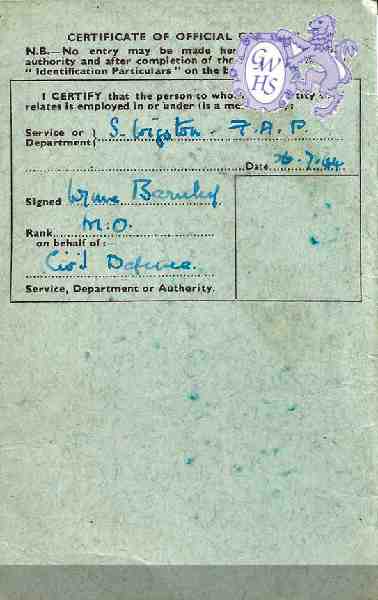 CERTIFICATE OF OFFICIAL
N.B.—No entry may be made her
authority and after completion of the
"Identification Particulars" on the b
GWHS
I CERTIFY that the person to who
relates is employed in or under (is a me
Service or
Department
S. Wigston. F.A.P.
Date 26.7.44
Signed
Rank M.O.
on behalf of:
Civil Defence.
Service, Department or Authority.